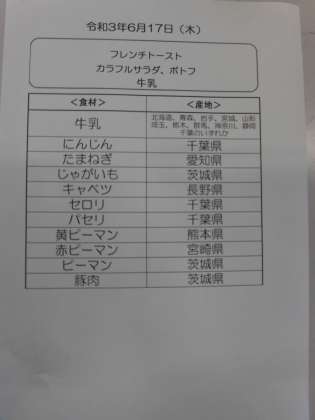 令和3年6月17日（木）
フレンチトースト
カラフルサラダ、ポトフ
牛乳
＜食材＞ ＜産地＞
牛乳 北海道、青森、岩手、宮城、山形
埼玉、栃木、群馬、神奈川、静岡
千葉のいずれか
にんじん 千葉県
たまねぎ 愛知県
じゃがいも 茨城県
キャベツ 長野県
セロリ 千葉県
パセリ 千葉県
黄ピーマン 熊本県
赤ピーマン 宮崎県
ピーマン 茨城県
豚肉 茨城県